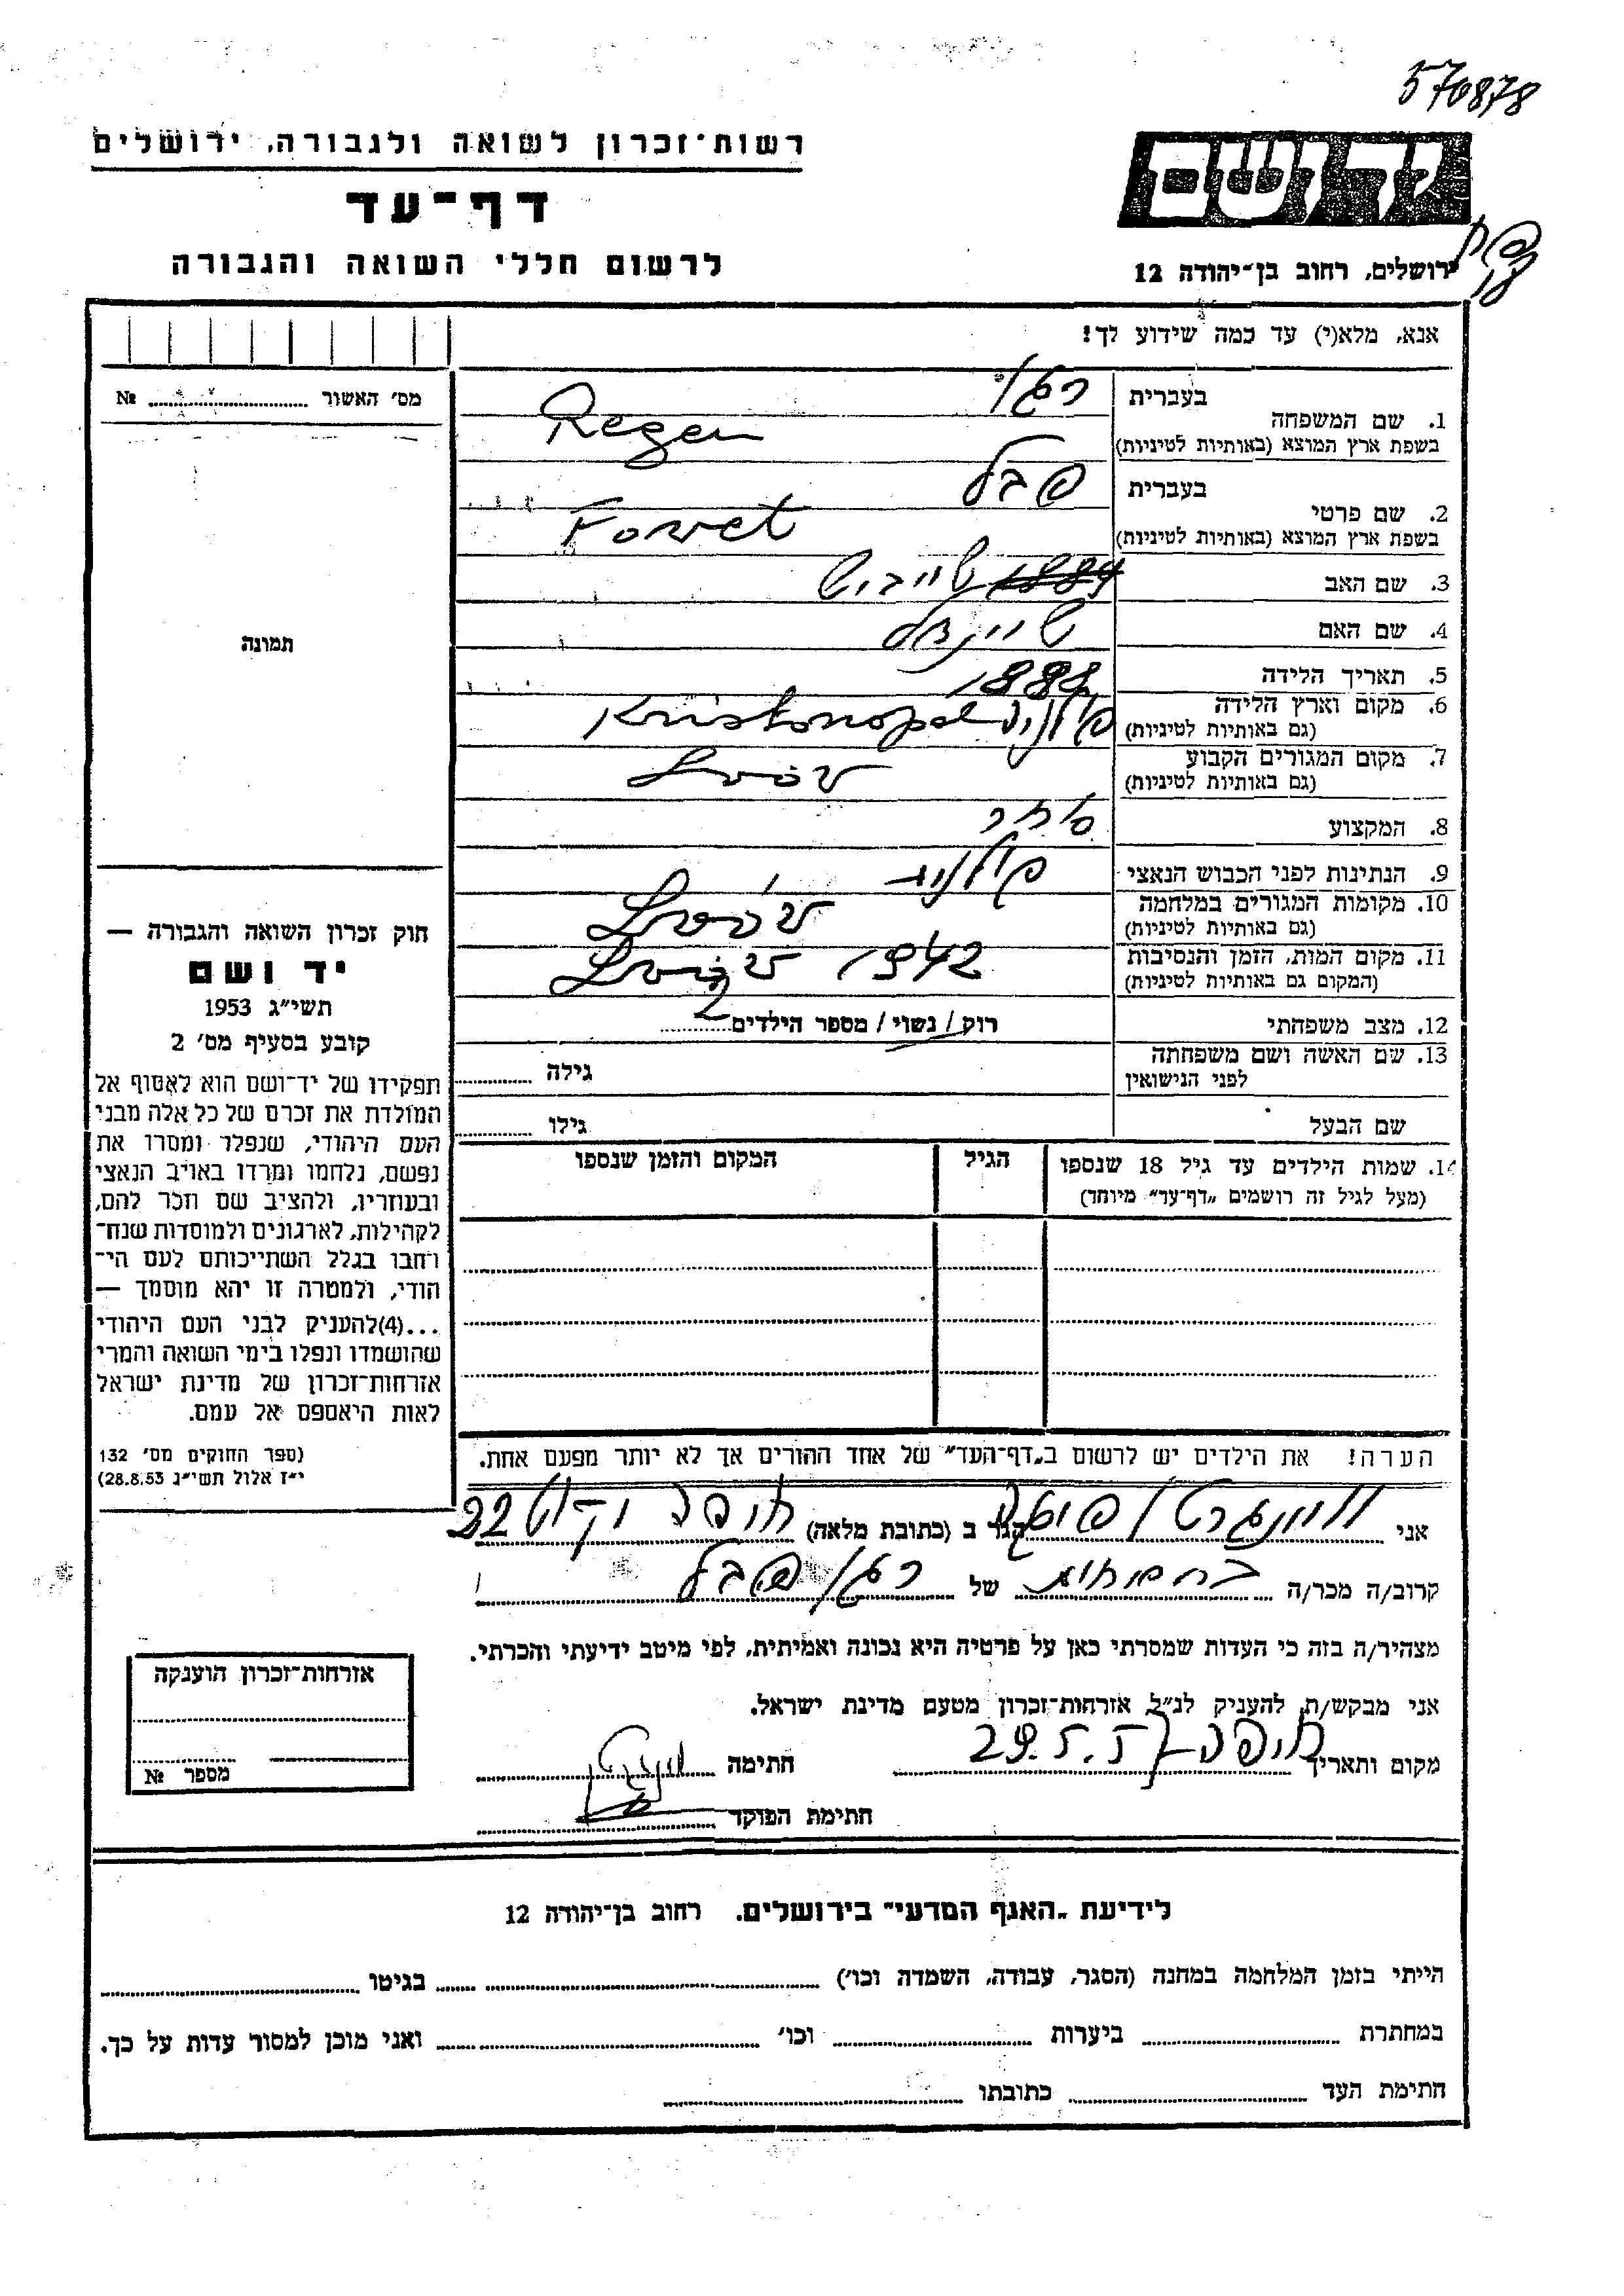 570878
רשות־זכרון לשואה ולגבורה, ירושלים
יד ושם
דף־עד
לרשום חללי השואה והגבורה
ירושלים, רחוב בן־יהודה 12
אנא, מלא(י) עד כמה שידוע לך!
מס׳ האשור № 
1. שם המשפחה בעברית רגן
בשפת ארץ המוצא (באותיות לטיניות) Regen
2. שם פרטי בעברית
בשפת ארץ המוצא (באותיות לטיניות)
3. שם האב 1884
4. שם האם שיינדל
5. תאריך הלידה 1882
6. מקום וארץ הלידה פולניה Kristonopol
(גם באותיות לטיניות)
7. מקום המגורים הקבוע Lvov
(גם באותיות לטיניות)
8. המקצוע סוחר
9. הנתינות לפני הכבוש הנאצי פולנית
10. מקומות המגורים במלחמה Lvov
(גם באותיות לטיניות)
11. מקום המות, הזמן והנסיבות Lvov 1942
(המקום גם באותיות לטיניות)
12. מצב משפחתי רוק / נשוי / מספר הילדים 2
13. שם האשה ושם משפחתה גילה
לפני הנישואין
שם הבעל גילו
14. שמות הילדים עד גיל 18 שנספו הגיל המקום והזמן שנספו
(מעל לגיל זה רושמים „דף־עד״ מיוחד)
הערה! את הילדים יש לרשום ב„דף־העד״ של אחד ההורים אך לא יותר מפעם אחת.
תמונה
חוק זכרון השואה והגבורה —
יד ושם
תשי״ג 1953
קובע בסעיף מס׳ 2
תפקידו של יד־ושם הוא לאסוף אל
המולדת את זכרם של כל אלה מבני
העם היהודי, שנפלו ומסרו את
נפשם, נלחמו ומרדו באויב הנאצי
ובעוזריו, ולהציב שם וזכר להם,
לקהילות, לארגונים ולמוסדות שנח־
רחבו בגלל השתייכותם לעם הי־
הודי, ולמטרה זו יהא מוסמך —
...(4)להעניק לבני העם היהודי
שהושמדו ונפלו בימי השואה והמרי
אזרחות־זכרון של מדינת ישראל
לאות היאספם אל עמם.
(ספר החוקים מס׳ 132
י״ז אלול תשי״ג 28.8.53)
אני הגר ב (כתובת מלאה) חיפה 22
קרוב/ה מכר/ה של רגן
מצהיר/ה בזה כי העדות שמסרתי כאן על פרטיה היא נכונה ואמיתית, לפי מיטב ידיעתי והכרתי.
אני מבקש/ת להעניק לנ״ל אזרחות־זכרון מטעם מדינת ישראל.
מקום ותאריך חיפה 29.5.57 חתימה
חתימת הפוקד
אזרחות־זכרון הוענקה
מספר №
לידיעת „האגף המדעי״ בירושלים, רחוב בן־יהודה 12
הייתי בזמן המלחמה במחנה (הסגר, עבודה, השמדה וכו׳) בגיטו
במחתרת ביערות וכו׳ ואני מוכן למסור עדות על כך.
חתימת העד כתובתו